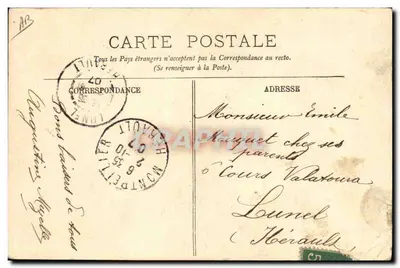 AB
CARTE POSTALE
Tous les Pays étrangers n'acceptent pas la Correspondance au recto.
(Se renseigner à la Poste).
CORRESPONDANCE
ADRESSE
Bons baisers de tous
Augustine
Monsieur Emile
chez ses
parents
Cours Valatoura
Lunel
(Hérault)
MONTPELLIER
HERAULT
LUNEL
HERAULT